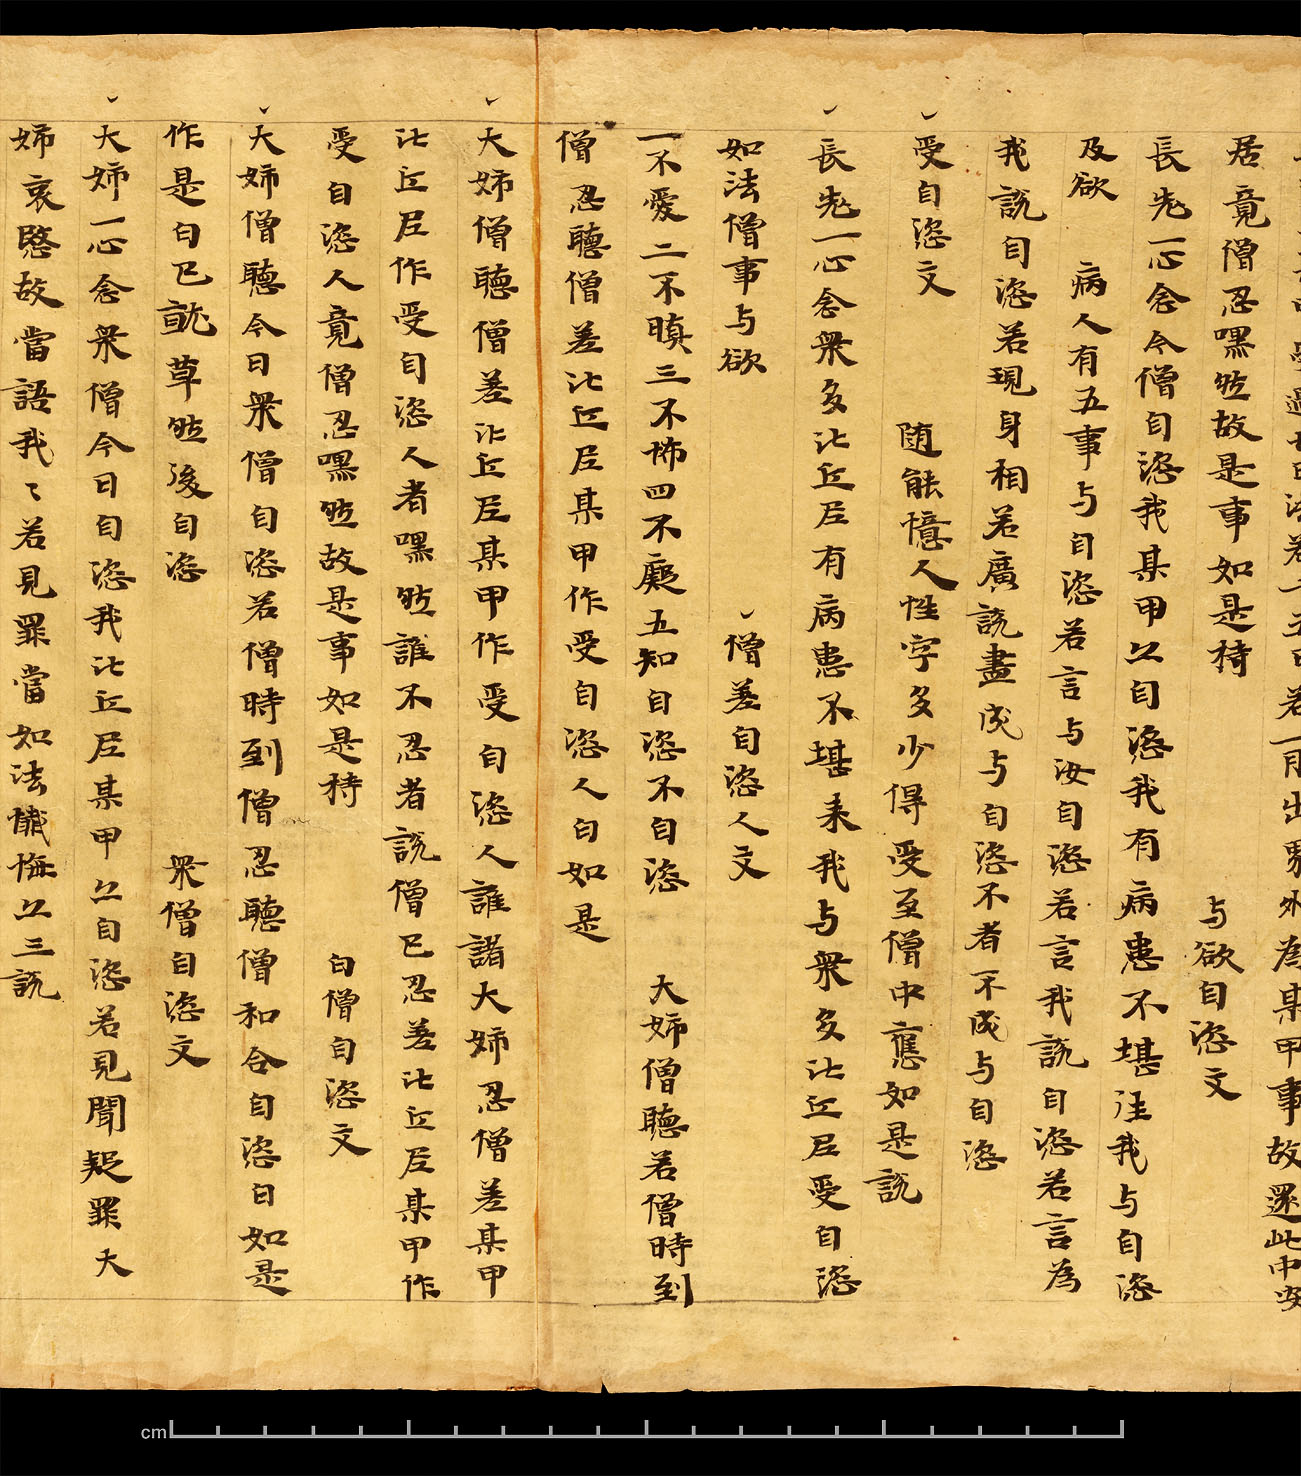 若一月出界外為某甲事故還此中安
居竟僧忍嘿然故是事如是持　与欲自恣文
長老一心念今僧自恣我某甲亦自恣我有病患不堪往我与自恣
及欲　病人有五事与自恣若言与汝自恣若言我說自恣若言為
我說自恣若現身相若廣說盡成与自恣不者不成与自恣
受自恣文　随能憶人性字多少得受至僧中應如是說
長老一心念衆多比丘尼有病患不堪来我与衆多比丘尼受自恣
如法僧事与欲　僧差自恣人文
一不愛二不瞋三不怖四不癡五知自恣不自恣　大姊僧聽若僧時到
僧忍聽僧差比丘尼某甲作受自恣人白如是
大姊僧聽僧差比丘尼某甲作受自恣人誰諸大姊忍僧差某甲
比丘尼作受自恣人者嘿然誰不忍者說僧已忍差比丘尼某甲作
受自恣人竟僧忍嘿然故是事如是持　白僧自恣文
大姊僧聽今日衆僧自恣若僧時到僧忍聽僧和合自恣白如是
作是白已就草然後自恣　衆僧自恣文
大姊一心念衆僧今日自恣我比丘尼某甲亦自恣若見聞疑罪大
姊哀愍故當語我〻若見罪當如法懺悔亦三說
cm